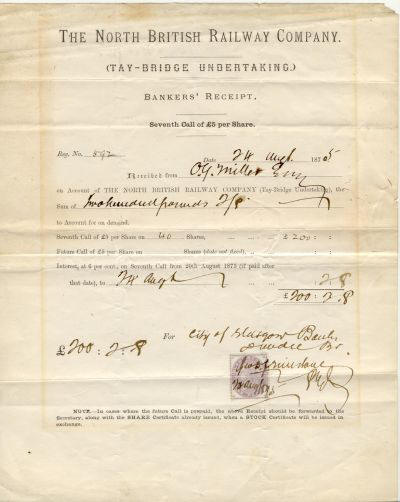 THE NORTH BRITISH RAILWAY COMPANY.
(TAY-BRIDGE UNDERTAKING.)
BANKERS' RECEIPT.
Seventh Call of £5 per Share.
Reg. No. 592
Date 24 Augt. 1875
Received from O.G. Miller Esq
on Account of THE NORTH BRITISH RAILWAY COMPANY (Tay-Bridge Undertaking), the
Sum of Two hundred pounds 2/8
to Account for on demand.
Seventh Call of £5 per Share on 40 Shares, £200 : :
Future Call of £5 per Share on Shares (date not fixed), : :
Interest, at 6 per cent., on Seventh Call from 20th August 1875 (if paid after
that date), to 24 Augt : 2. 8
£200 : 2. 8
For City of Glasgow Bank,
Dundee Br.
£200 : 2. 8
24 Aug 1875
NOTE.—In cases where the future Call is prepaid, the above Receipt should be forwarded to the
Secretary, along with the SHARE Certificate already issued, when a STOCK Certificate will be issued in
exchange.